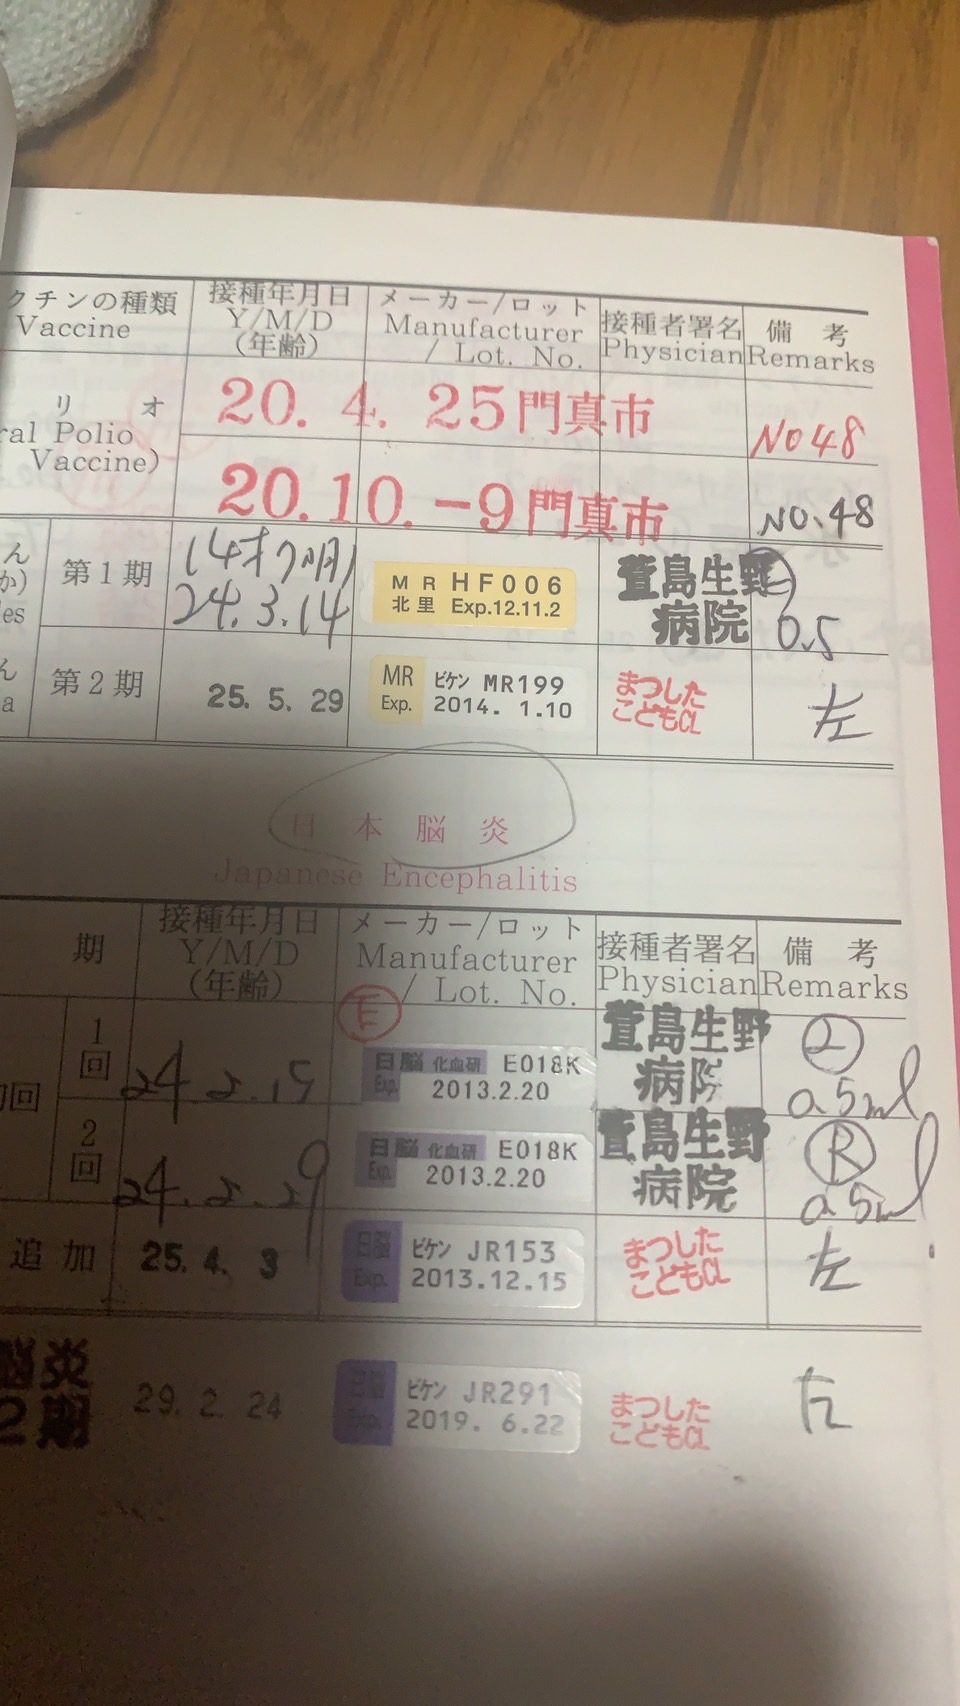 クチンの種類 接種年月日 メーカー/ロット 接種者署名 備 考
Vaccine Y/M/D Manufacturer Physician Remarks
(年齢) / Lot. No.
リ オ 20. 4. 25 門真市 NO48
ral Polio
Vaccine) 20.10.-9 門真市 NO.48
ん 第1期 24.3.14 MR HF006 萱島生野
か) 北里 Exp.12.11.2 病院 0.5
les
ん 第2期 25. 5. 29 MR ビケン MR199 まつした 左
a Exp. 2014. 1.10 こどもCL
日 本 脳 炎
Japanese Encephalitis
期 接種年月日 メーカー/ロット 接種者署名 備 考
Y/M/D Manufacturer Physician Remarks
(年齢) / Lot. No.
回 1回 24.2.15 日脳 化血研 E018K 萱島生野
Exp. 2013.2.20 病院 0.5ml
2回 24.2.29 日脳 化血研 E018K 萱島生野 R
Exp. 2013.2.20 病院 0.5ml
追 加 25.4. 3 日脳 ビケン JR153 まつした 左
Exp. 2013.12.15 こどもCL
脳炎 29. 2. 24 日脳 ビケン JR291 まつした
2期 Exp. 2019. 6.22 こどもCL